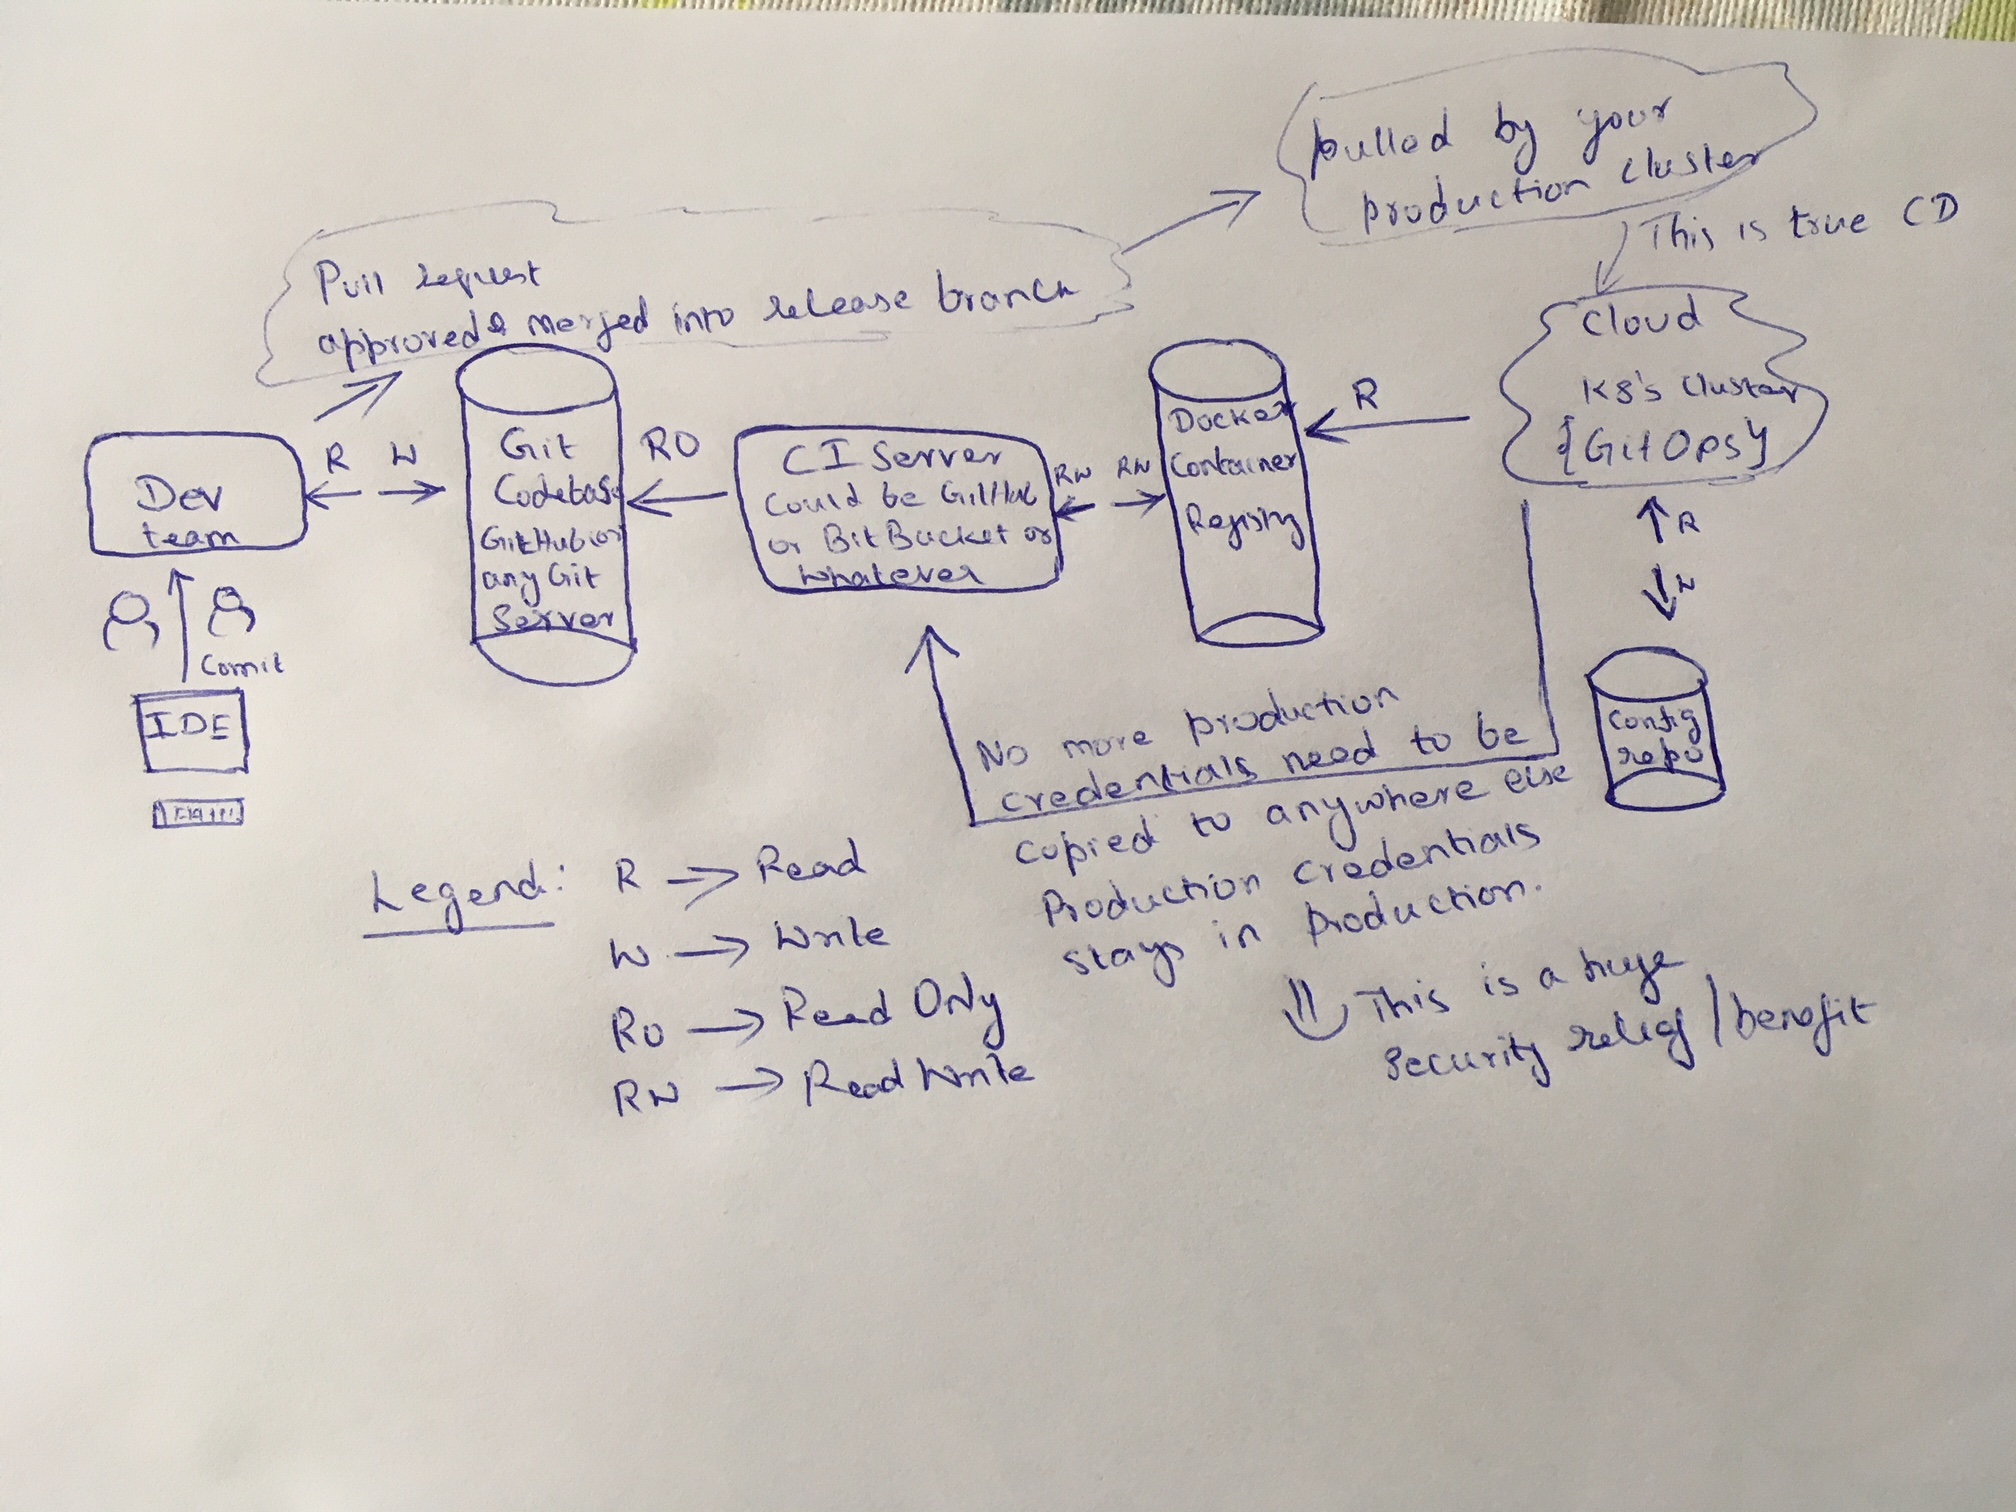 pulled by your
production cluster
This is true CD
Pull request
approved & merged into release branch
Cloud
K8's cluster
{GitOps}
R
Docker
Container
Registry
R W
Git
Codebase
GitHub or
any Git
Server
RO
CI Server
Could be GitHub
or BitBucket or
whatever
RW RW
Dev
team
R
W
Comit
IDE
Config
repo
No more production
credentials need to be
copied to anywhere else
Production credentials
stays in production.
This is a huge
security relief/benefit
Legend:
R → Read
W → Write
RO → Read Only
RW → Read Write